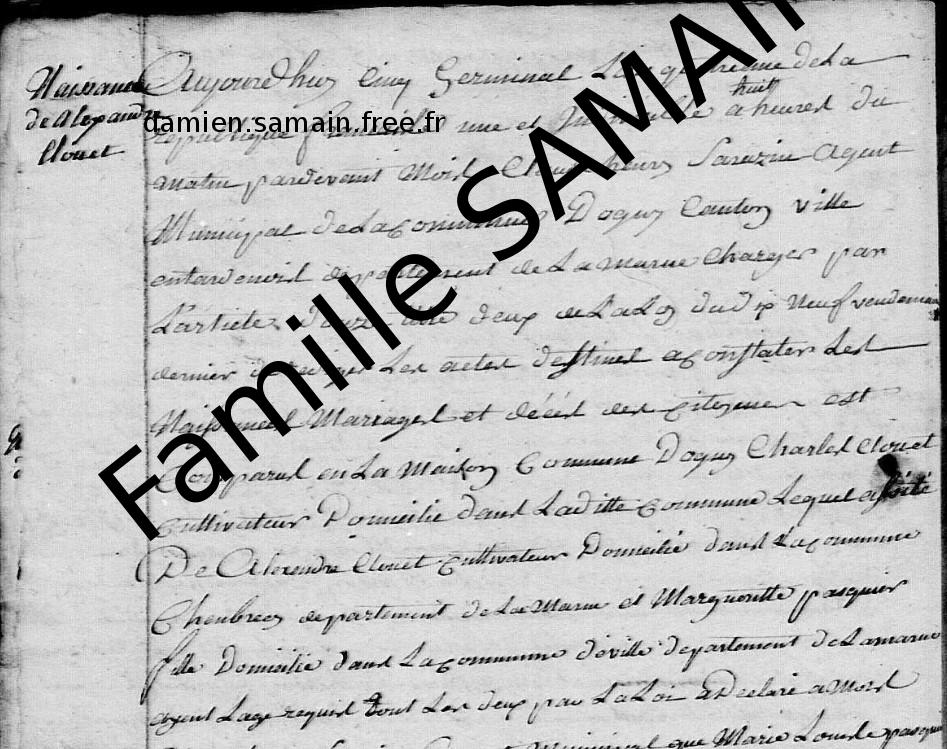 Naissance
de alexandre
Clouet
Aujourdhuy Cinq Germinal L'an quatrieme de La
huit
republique française une et Indivisible a heures du
matin pardevant Moi Sarazin Agent
Municipal de La Commune Doguy Canton ville
entardenois departement de La Marne Charger par
L'article douze titre deux de La Loy du dix Neuf vendemiaire
dernier a rediger Les actes destines a Constater Les
Naissances Mariages et décés des Citoyens est
Comparus en La Maison Commune Doguy Charles Clouet
Cultivateur Domicilie dans Laditte Commune Lequel assisté
De Alexendre Clouet Cultivateur Domicilie dans La Commune
departement de La Marne et Margueritte pasquier
fille Domicilie dans La Commune déville departement de Lamarne
ayent Lage requis tout Les deux par La Loi a Declaré a Moi
Municipal que Marie Louise pasquier
damien.samain.free.fr
Famille SAMAIN